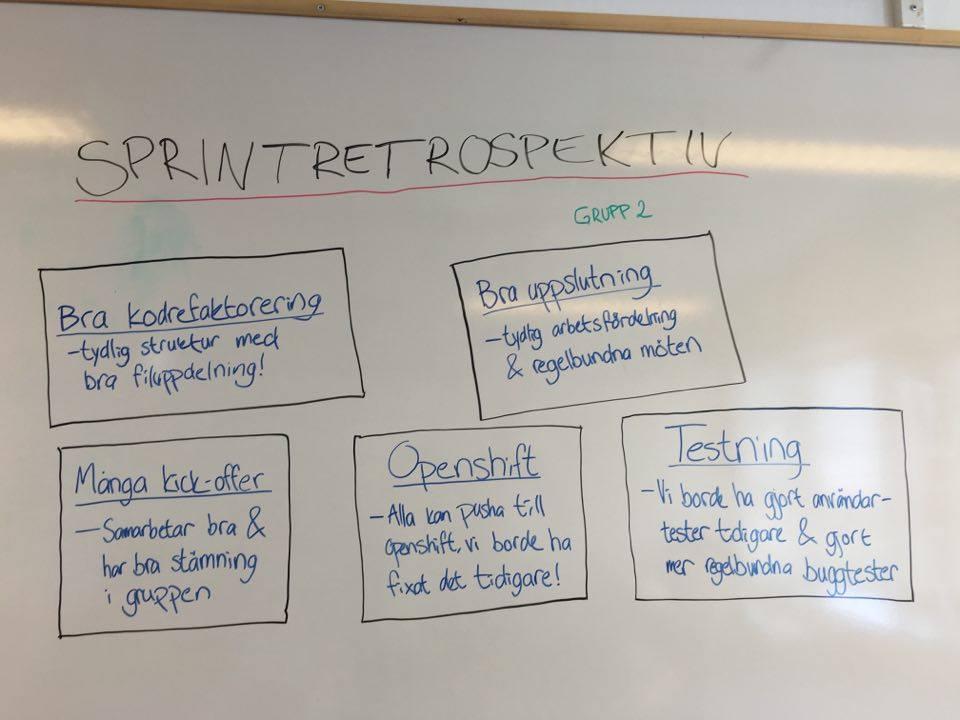 SPRINTRETROSPEKTIV
GRUPP 2
Bra kodrefaktorering
-tydlig struktur med
bra filuppdelning!
Bra uppslutning
-tydlig arbetsfördelning
& regelbundna möten
Många kick-offer
-Samarbetar bra &
har bra stämning
i gruppen
Openshift
-Alla kan pusha till
openshift, vi borde ha
fixat det tidigare!
Testning
-Vi borde ha gjort användar-
tester tidigare & gjort
mer regelbundna buggtester